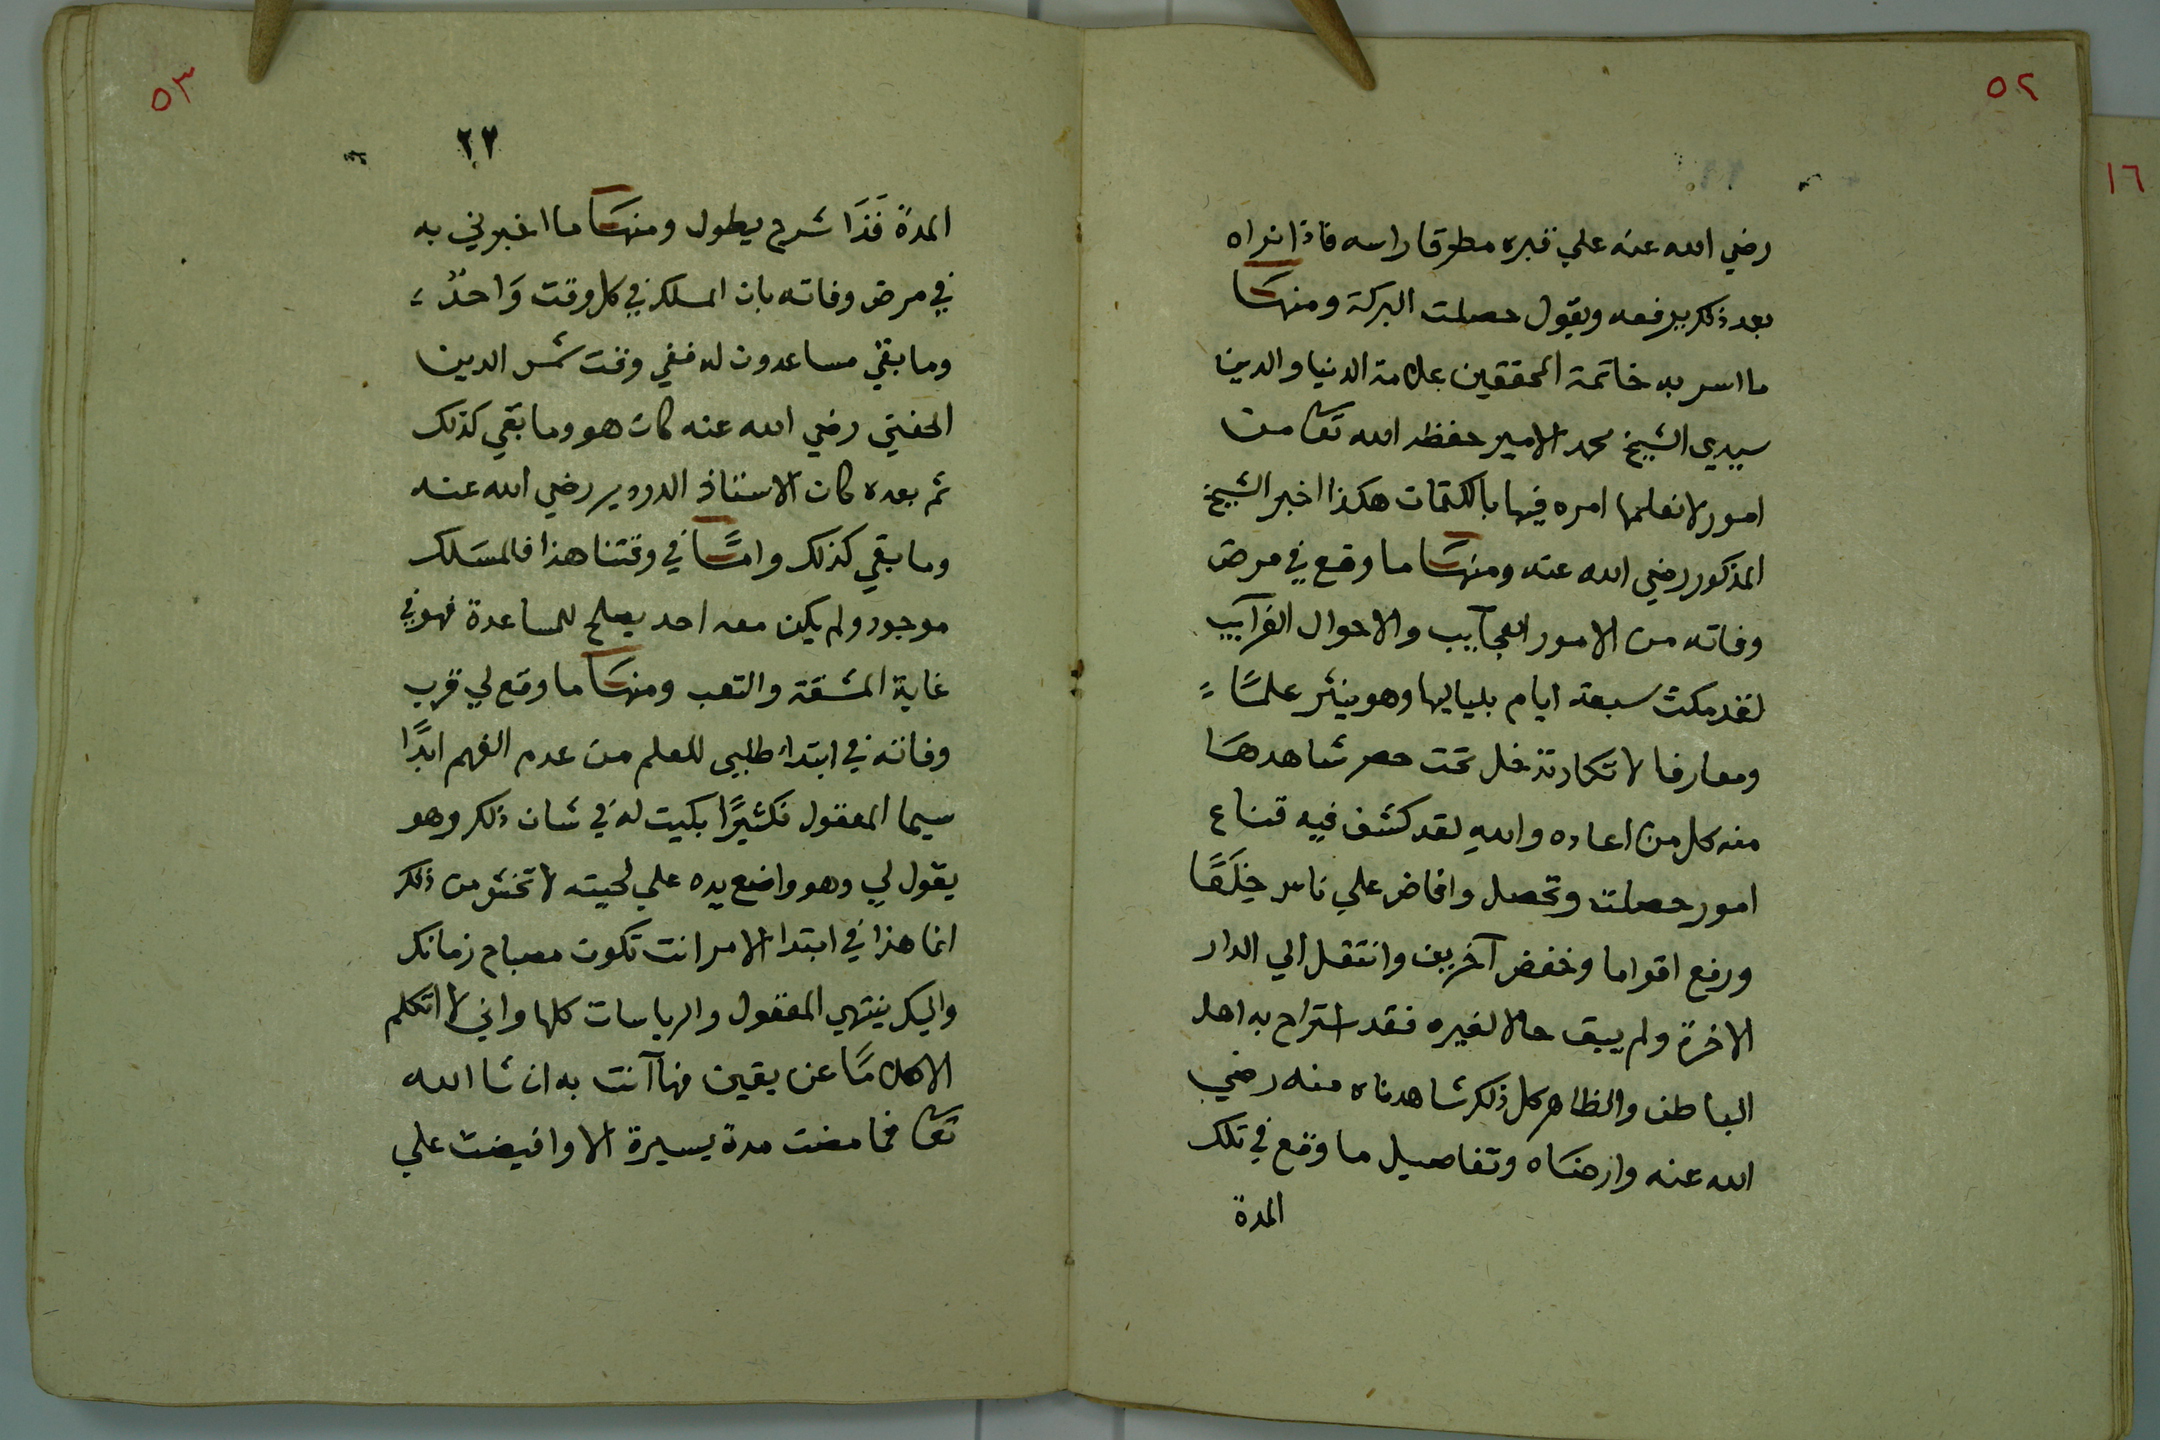 ٥٢
١٦
رضي الله عنه علي قبره مطرقا راسه فاذا نراه
بعد ذلك يرفعه ويقول حصلت البركة ومنهَا
ما اسر به خاتمة المحققين علامة الدنيا والدين
سيدي الشيخ محمد الامير حفظه الله تعا من
امور لا نعلمها امره فيها بالكتمات هكذا اخبر الشيخ
المذكور رضي الله عنه ومنهَا ما وقع في مرض
وفاته من الامور العجآيب والاحوال الغرآيب
لقد مكث سبعة ايام بلياليها وهو ينثر علمًا
ومعارفا لا تكاد تدخل تحت حصر شاهدهَا
منه كل من اعاده والله لقد كشف فيه قناع
امور حصلت وتحصل وافاض علي ناس خِلَعًا
ورفع اقواما وخفض آخرين وانتقل الي الدار
الاخرة ولم يبق حالا لغيره فقد استراح به اهل
الباطن والظاهر كل ذلك شاهدناه منه رضي
الله عنه وارضَاه وتفاصيل ما وقع في تلك
المدة
٥٣
٢٧
المدة فَذَا شرح يطول ومنهَا ما اخبرني به
في مرض وفاته بان المسلك في كل وقت وَاحدٌ
وما بقي مساعدون له ففي وقت شمس الدين
الحفني رضي الله عنه كان هو وما بقي كذلك
ثم بعده كان الاستاذ الدردير رضي الله عنه
وما بقي كذلك وامَّا في وقتنا هذا فالمسَلك
موجود ولم يكن معه احد يصلح للمساعدة فهو في
غاية المشقة والتعب ومنهَا ما وقع لي قرب
وفاته في ابتداء طلبي للعلم من عدم الفهم ابدًا
سيما المعقول فكثيرًا بكيت له في شان ذلك وهو
يقول لي وهو واضع يده علي لحيته لا تخش من ذلك
انما هذا في ابتدا الامر انت تكون مصباح زمانك
واليك ينتهي المعقول والرياسات كلها واني لا اتكلم
الا كلامًا عن يقين فهآ آنت به ان شا الله
تعا فما مضت مدة يسيرة الا وافيضت علي